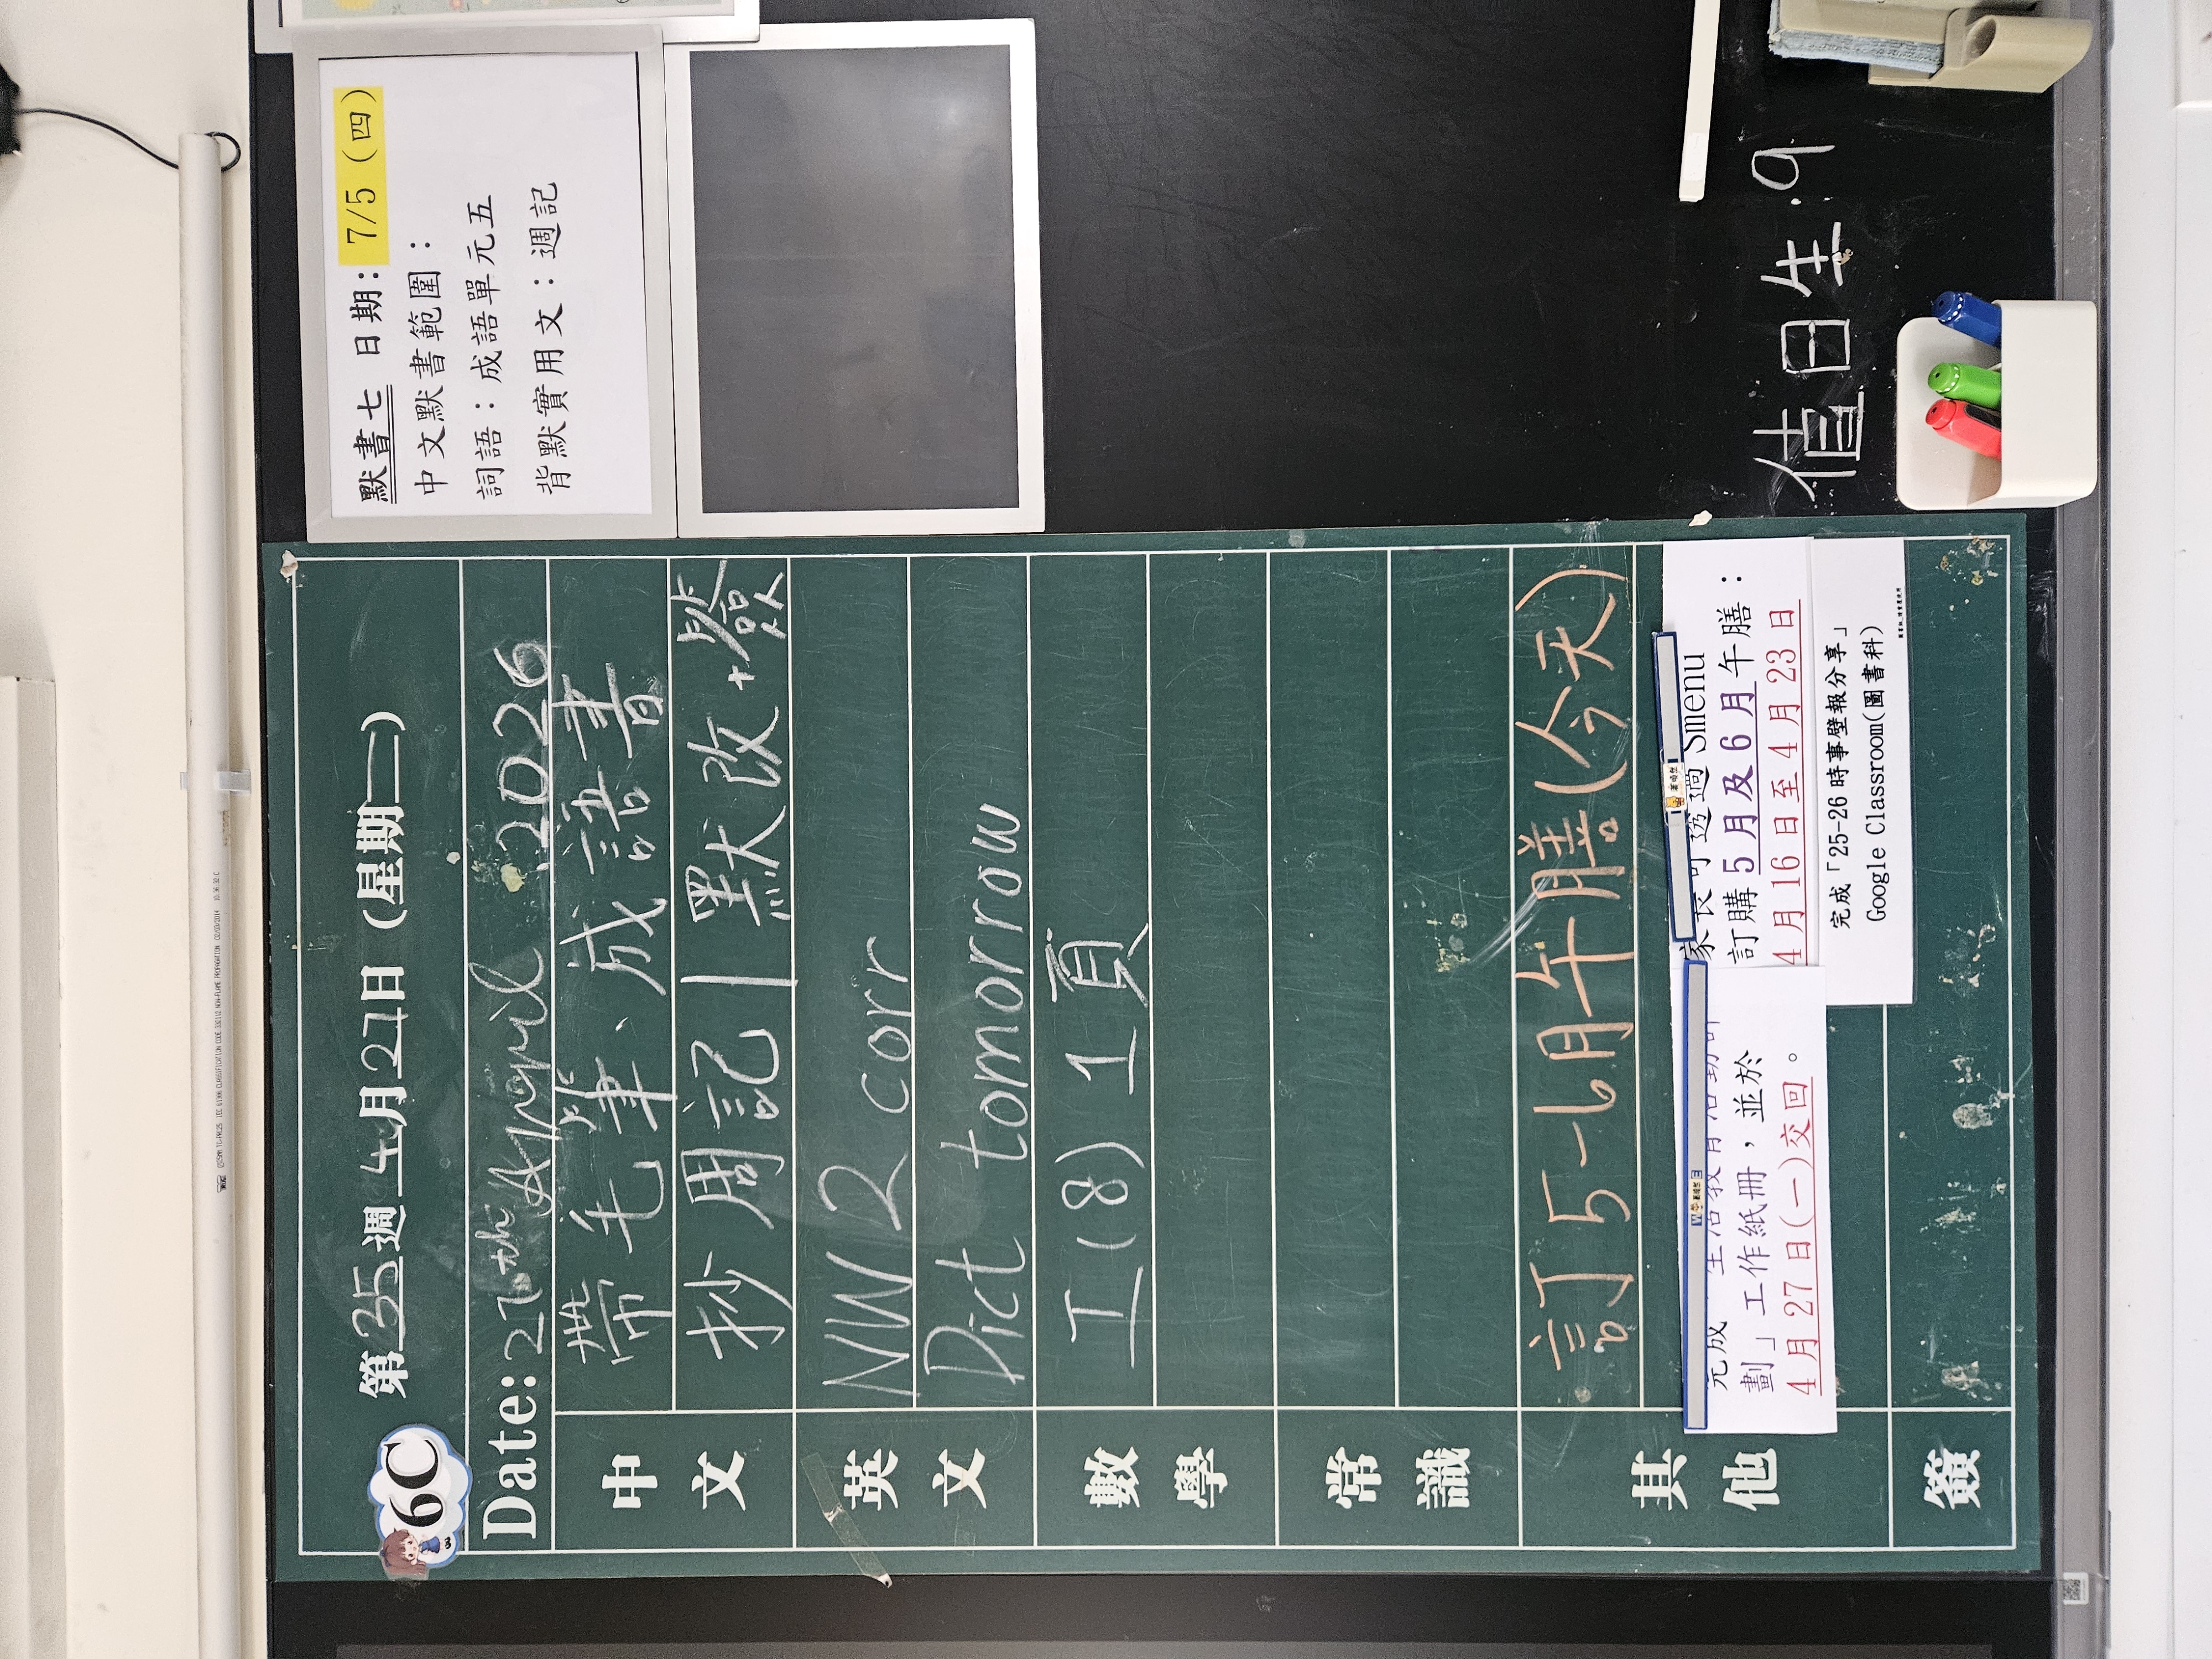 6C
第35週 4月27日 (星期二)
Date: 27th April 2026
中文
帶毛筆、成語書
抄周記 | 默改+簽
英文
NW 2 corr
Dict tomorrow
數學
工(8) 1頁
常識
其他
訂5-6月午膳(今天)
劃」工作紙冊，並於
4月27日(一)交回。
家長可透過 Smenu
訂購5月及6月午膳：
4月16日至4月23日
完成「25-26時事壁報分享」
Google Classroom(圖書科)
簽
默書七 日期：7/5（四）
中文默書範圍：
詞語：成語單元五
背默實用文：週記
值日生：9